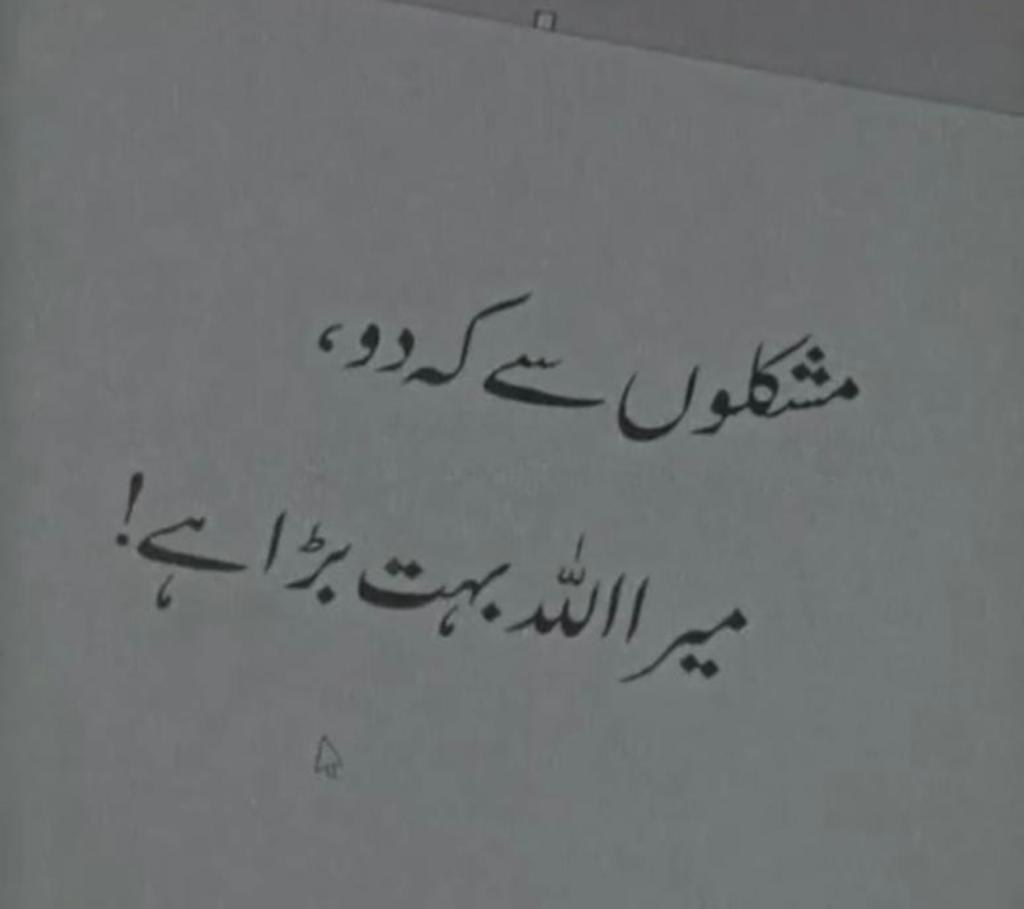 مشکلوں سے کہ دو،
میرا اللہ بہت بڑا ہے!